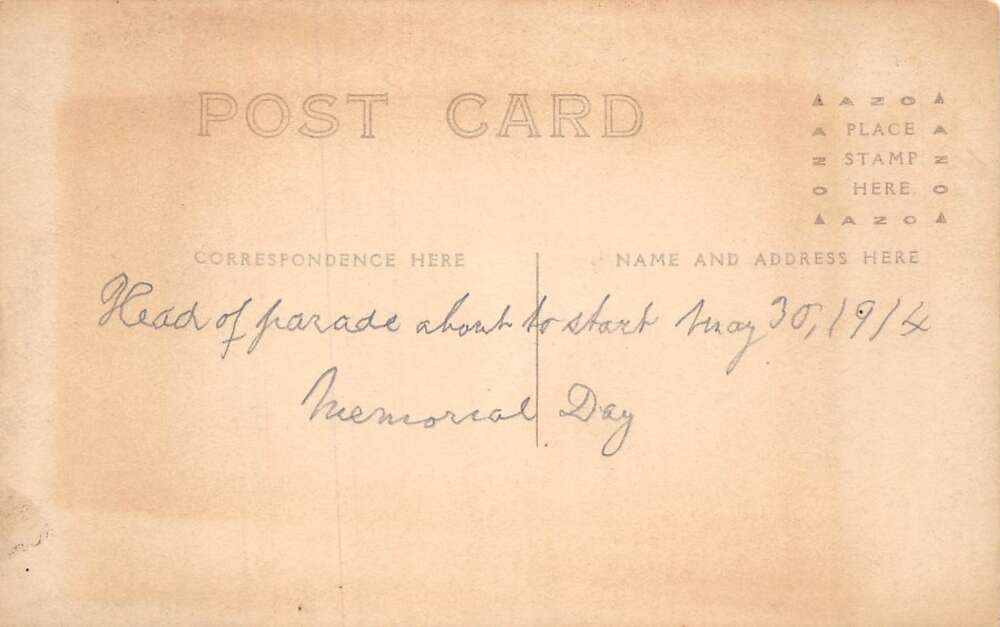 POST CARD
▲ A Z O ▲
A PLACE A
Z STAMP Z
O HERE O
▲ A Z O ▲
CORRESPONDENCE HERE
NAME AND ADDRESS HERE
Head of parade about to start May 30, 1914
Memorial Day